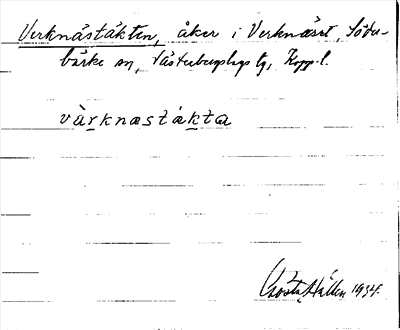 Verknästäkten, åker i Verknäset, Söder-
bärke sn, Västerbergslags tg, Kopp. l.
vàrknæstákta
Gösta Hallén 1934.